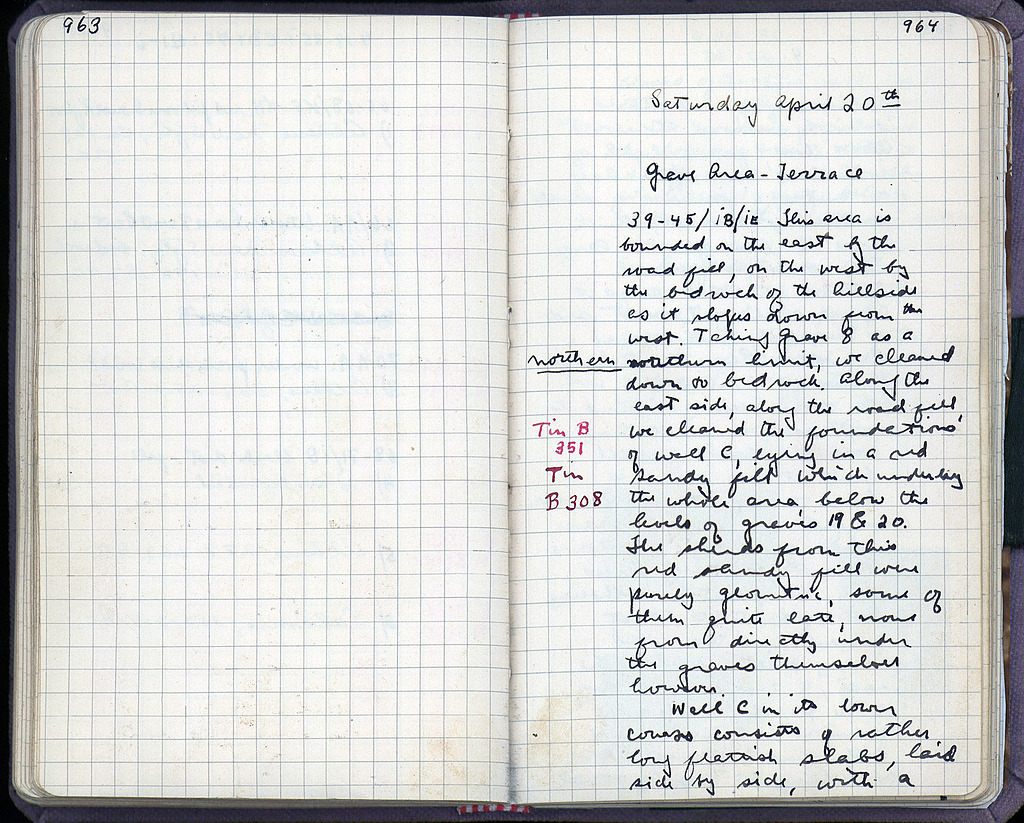 963
964
Saturday April 20th
Grave Area - Terrace
39-45/ΙΒ/ΙΕ This area is
bounded on the east by the
road fill, on the west by
the bedrock of the hillside
as it slopes down from the
west. Taking Grave 8 as a
northern
limit, we cleaned
down to bedrock. Along the
east side, along the road fill,
Tin B
351
we cleaned the foundations
of wall C, lying in a red
Tin
B 308
sandy fill which underlay
the whole area below the
levels of graves 19 & 20.
The sherds from this
red sandy fill were
purely geometric, some of
them quite late, none
from directly under
the graves themselves
however.
Wall C in its lower
courses consists of rather
long flattish slabs, laid
side by side, with a